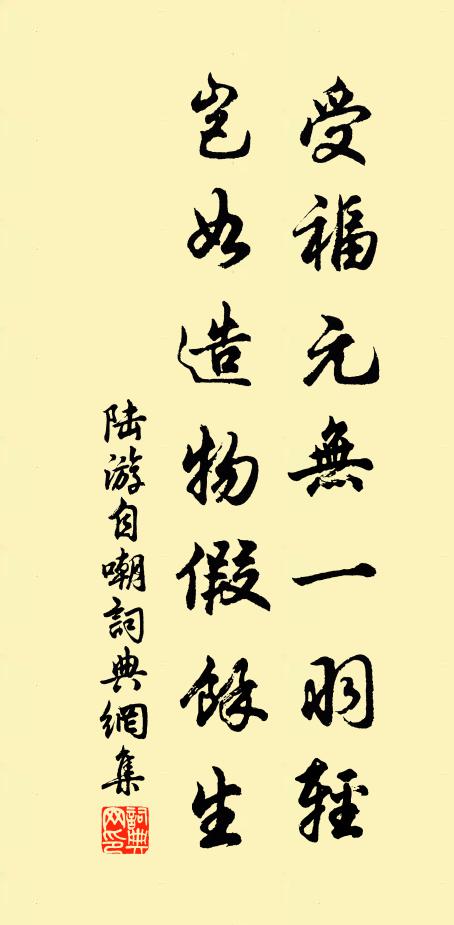 受福元無一羽輕
豈如造物假餘生
陸游自嘲詞典網集
詞典網印